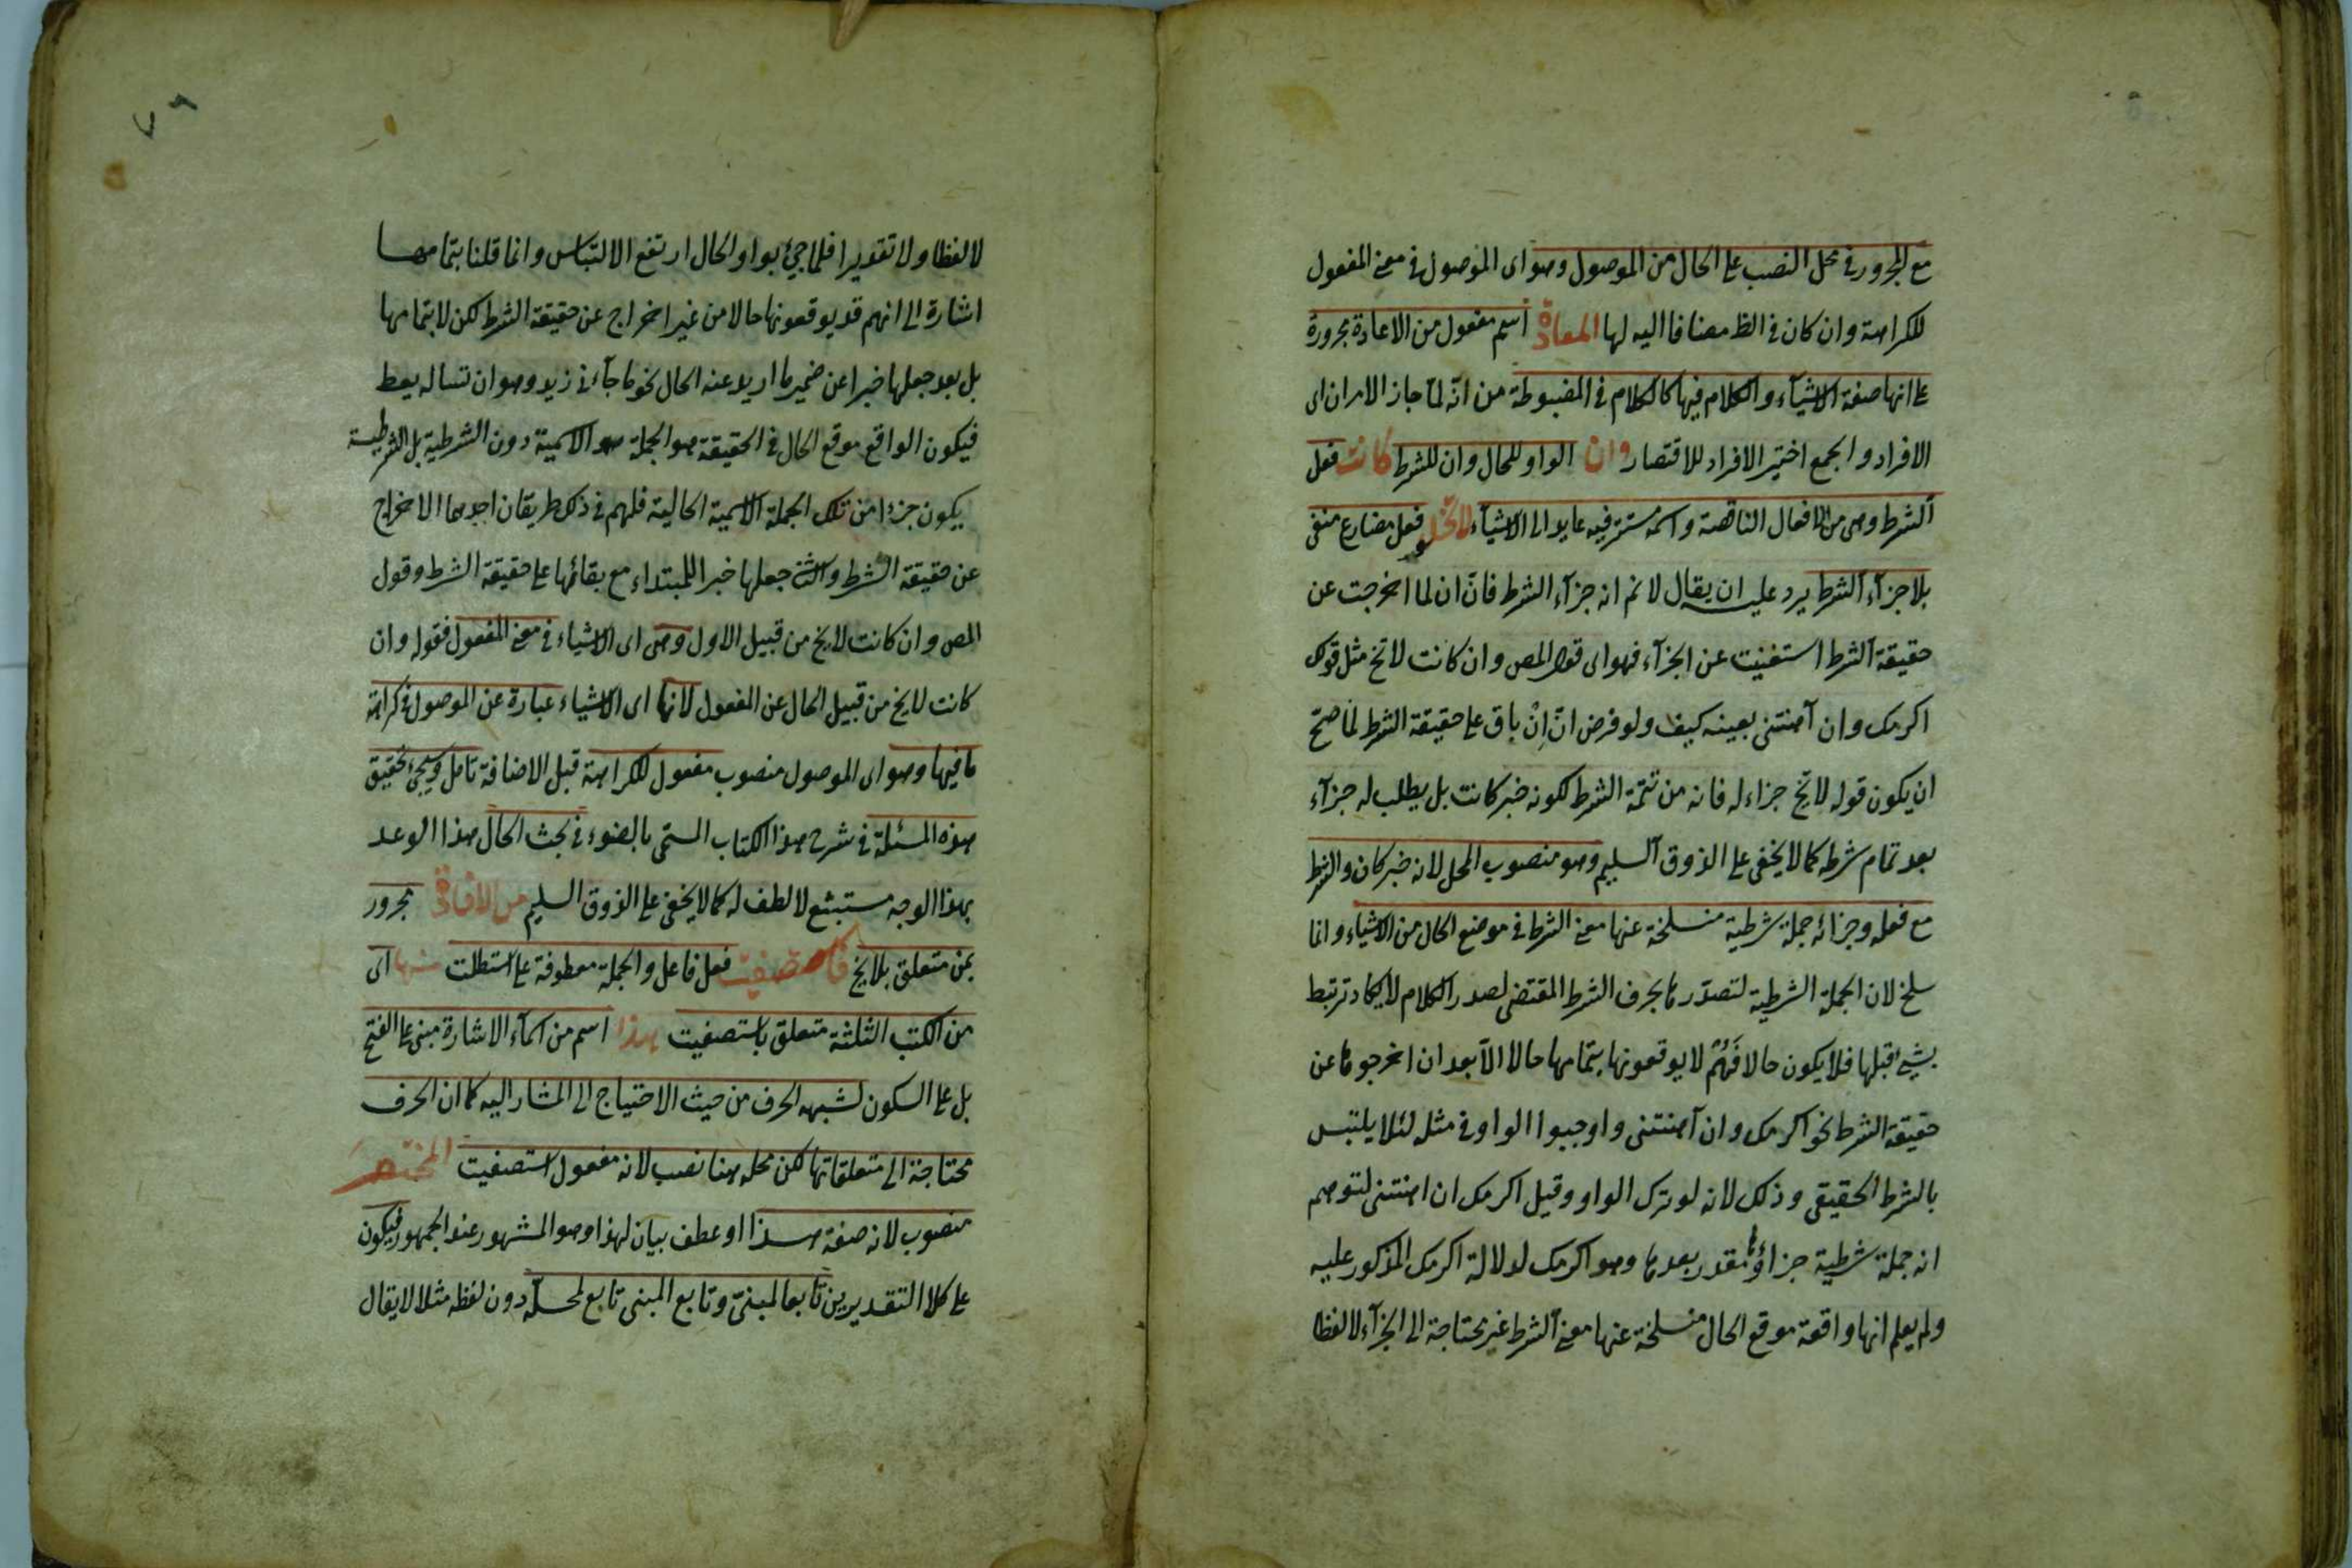 مع المجرور فى محل النصب على الحال من الموصول وهو اى الموصول فى معنى المفعول
للكراهة وان كان فى الظ مضافا اليه لها المعادة اسم مفعول من الاعادة مجرورة
على انها صفة الاشيآء والكلام فيها كالكلام فى المضبوطة من انّه لمّا جاز الامران اى
الافراد والجمع اختير الافراد للاقتصار وان الواو للحال وان للشرط كانت فعل
الشرط وهى من الافعال الناقصة واسمه مستتر فيه عايد الى الاشيآء لا تخلو فعل مضارع منفى
بلا جزآء الشرط يرد عليه ان يقال لا نم انه جزآء الشرط فانّ ان لما اخرجت عن
حقيقة الشرط استغنيت عن الجزآء فهو اى قول المص وان كانت لا تخ مثل قولك
اكرمك وان آهنتنى بعينه كيف ولو فرض انّ اِنْ باق على حقيقة الشرط لمّا صحّ
ان يكون قوله لا تخ جزاء له فانه من تتمّة الشرط لكونه خبر كانت بل يطلب له جزآء
بعد تمام شرطه كما لا يخفى على الذوق السليم وهو منصوب المحل لانه خبر كان والشرط
مع فعله وجزائه جملة شرطية منسلخة عنها معنى الشرط فى موضع الحال من الاشياء وانما
سلخ لان الجملة الشرطية لتصدّرها بحرف الشرط المقتضى لصدر الكلام لا يكاد ترتبط
بشئ قبلها فلا يكون حالا فَهُمْ لا يوقعونها بتمامها حالا الّا بعد ان اخرجوها عن
حقيقة الشرط نحو اكرمك وان آهنتنى واوجبوا الواو فى مثله لئلا يلتبس
بالشرط الحقيقى وذلك لانه لو ترك الواو وقيل اكرمك ان اهنتنى لتوهم
انه جملة شرطية جزاؤها مقدر بعدها وهو اكرمك لدلالة اكرمك المذكور عليه
ولم يعلم انها واقعة موقع الحال منسلخة عنها معنى الشرط غير محتاجة الى الجزآء لا لفظا
٧٩
لا لفظا ولا تقديرا فلما جئ بواو الحال ارتفع الالتباس وانما قلنا بتمامها
اشارة الى انهم قد يوقعونها حالا من غير اخراج عن حقيقة الشرط لكن لا بتمامها
بل بعد جعلها خبرا عن ضمير ما اريد عنه الحال نحو ما جآءنى زيد وهو ان تساله يعط
فيكون الواقع موقع الحال فى الحقيقة هو الجملة الاسمية دون الشرطية بل الشرطية
يكون جزءا من تلك الجملة الاسمية الحالية فلهم فى ذلك طريقان احدهما الاخراج
عن حقيقة الشرط والث جعلها خبرا للمبتداء مع بقائها على حقيقة الشرط وقول
المص وان كانت لا يخ من قبيل الاول وهى اى الاشياء فى معنى المفعول فقوله وان
كانت لا يخ من قبيل الحال عن المفعول لانها اى الاشياء عبارة عن الموصول فى كراهة
ما فيها وهو اى الموصول منصوب مفعول للكراهة قبل الاضافة تامل وسيجئ تحقيق
هذه المسئلة فى شرح هذا الكتاب المسمّى بالضوء فى بحث الحال هذا الوعد
بهذا الوجه مستبشع لا لطف له كما لا يخفى على الذوق السليم من الافادة مجرور
بمن متعلق بلا يخ فاستصفيت فعل فاعل والجملة معطوفة على استطلت منها اى
من الكتب الثلثة متعلق باستصفيت هذا اسم من اسمآء الاشارة مبنى على الفتح
بل على السكون لشبهه الحرف من حيث الاحتياج الى المشار اليه كما ان الحرف
محتاجة الى متعلقاتها لكن محله هنا نصب لانه مفعول استصفيت المختصر
منصوب لانه صفة هذا او عطف بيان لهذا وهو المشهور عند الجمهور فيكون
على كلا التقديرين تابعا لمبنىّ وتابع المبنى تابع لمحلّه دون لفظه مثلا لا يقال